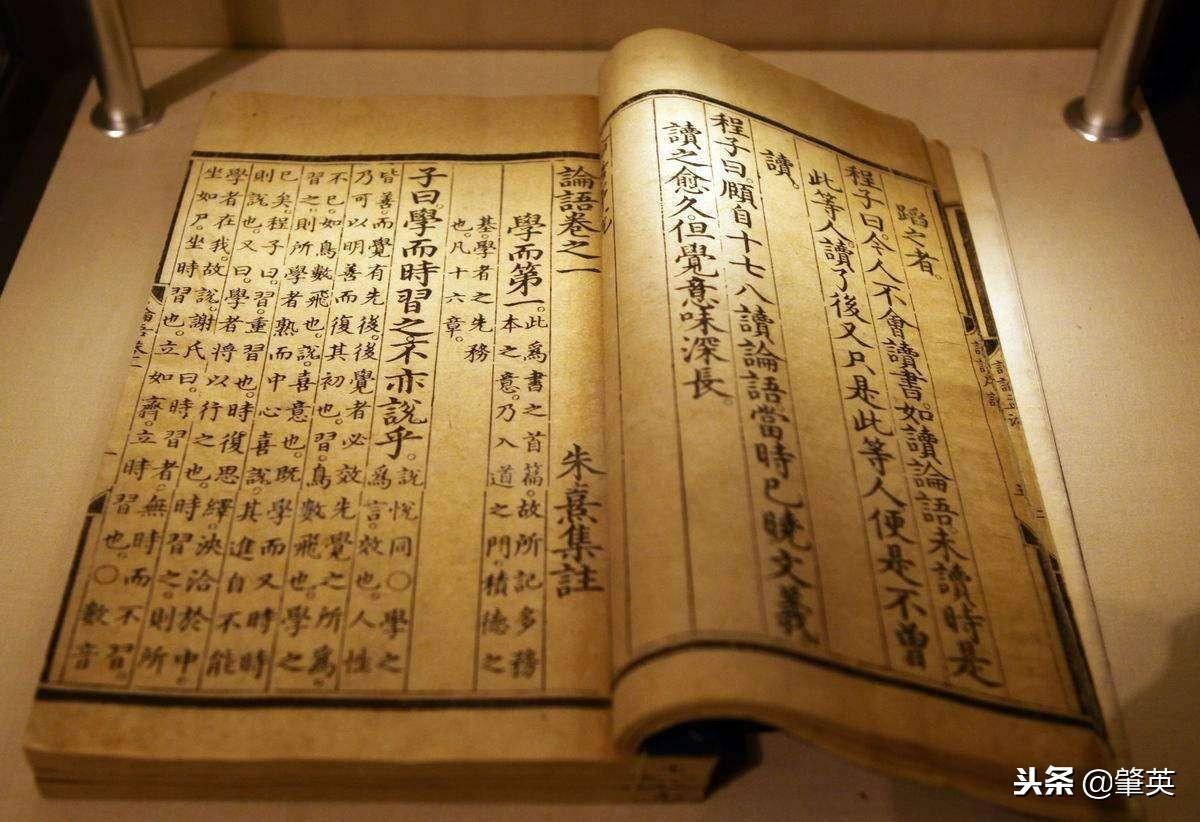 蹈之者。
程子曰。今人不會讀書。如讀論語。未讀時是
此等人。讀了後又只是此等人。便是不曾
讀。
程子曰。頤自十七八讀論語。當時已曉文義
讀之愈久。但覺意味深長。
論語卷之一 朱熹集註
學而第一。此爲書之首篇。故所記多務
本之意。乃入道之門。積德之
基。學者之先務
也。凡十六章。
子曰。學而時習之不亦說乎。說悅同○學之
爲言效也。人性
皆善。而覺有先後。後覺者必效先覺之所爲
乃可以明善而復其初也。習。鳥數飛也。學之
不已。如鳥數飛也。說。喜意也。既學而又時時
習之。則所學者熟而中心喜說。其進自不能
已矣。程子曰。習。重習也。時復思繹。浹洽於中。
則說也。又曰。學者將以行之也。時習之。則所
學者在我。故說。謝氏曰。時習者。無時而不習。
坐如尸。坐時習也。立如齊。立時習也。○數音
头条 @肇英